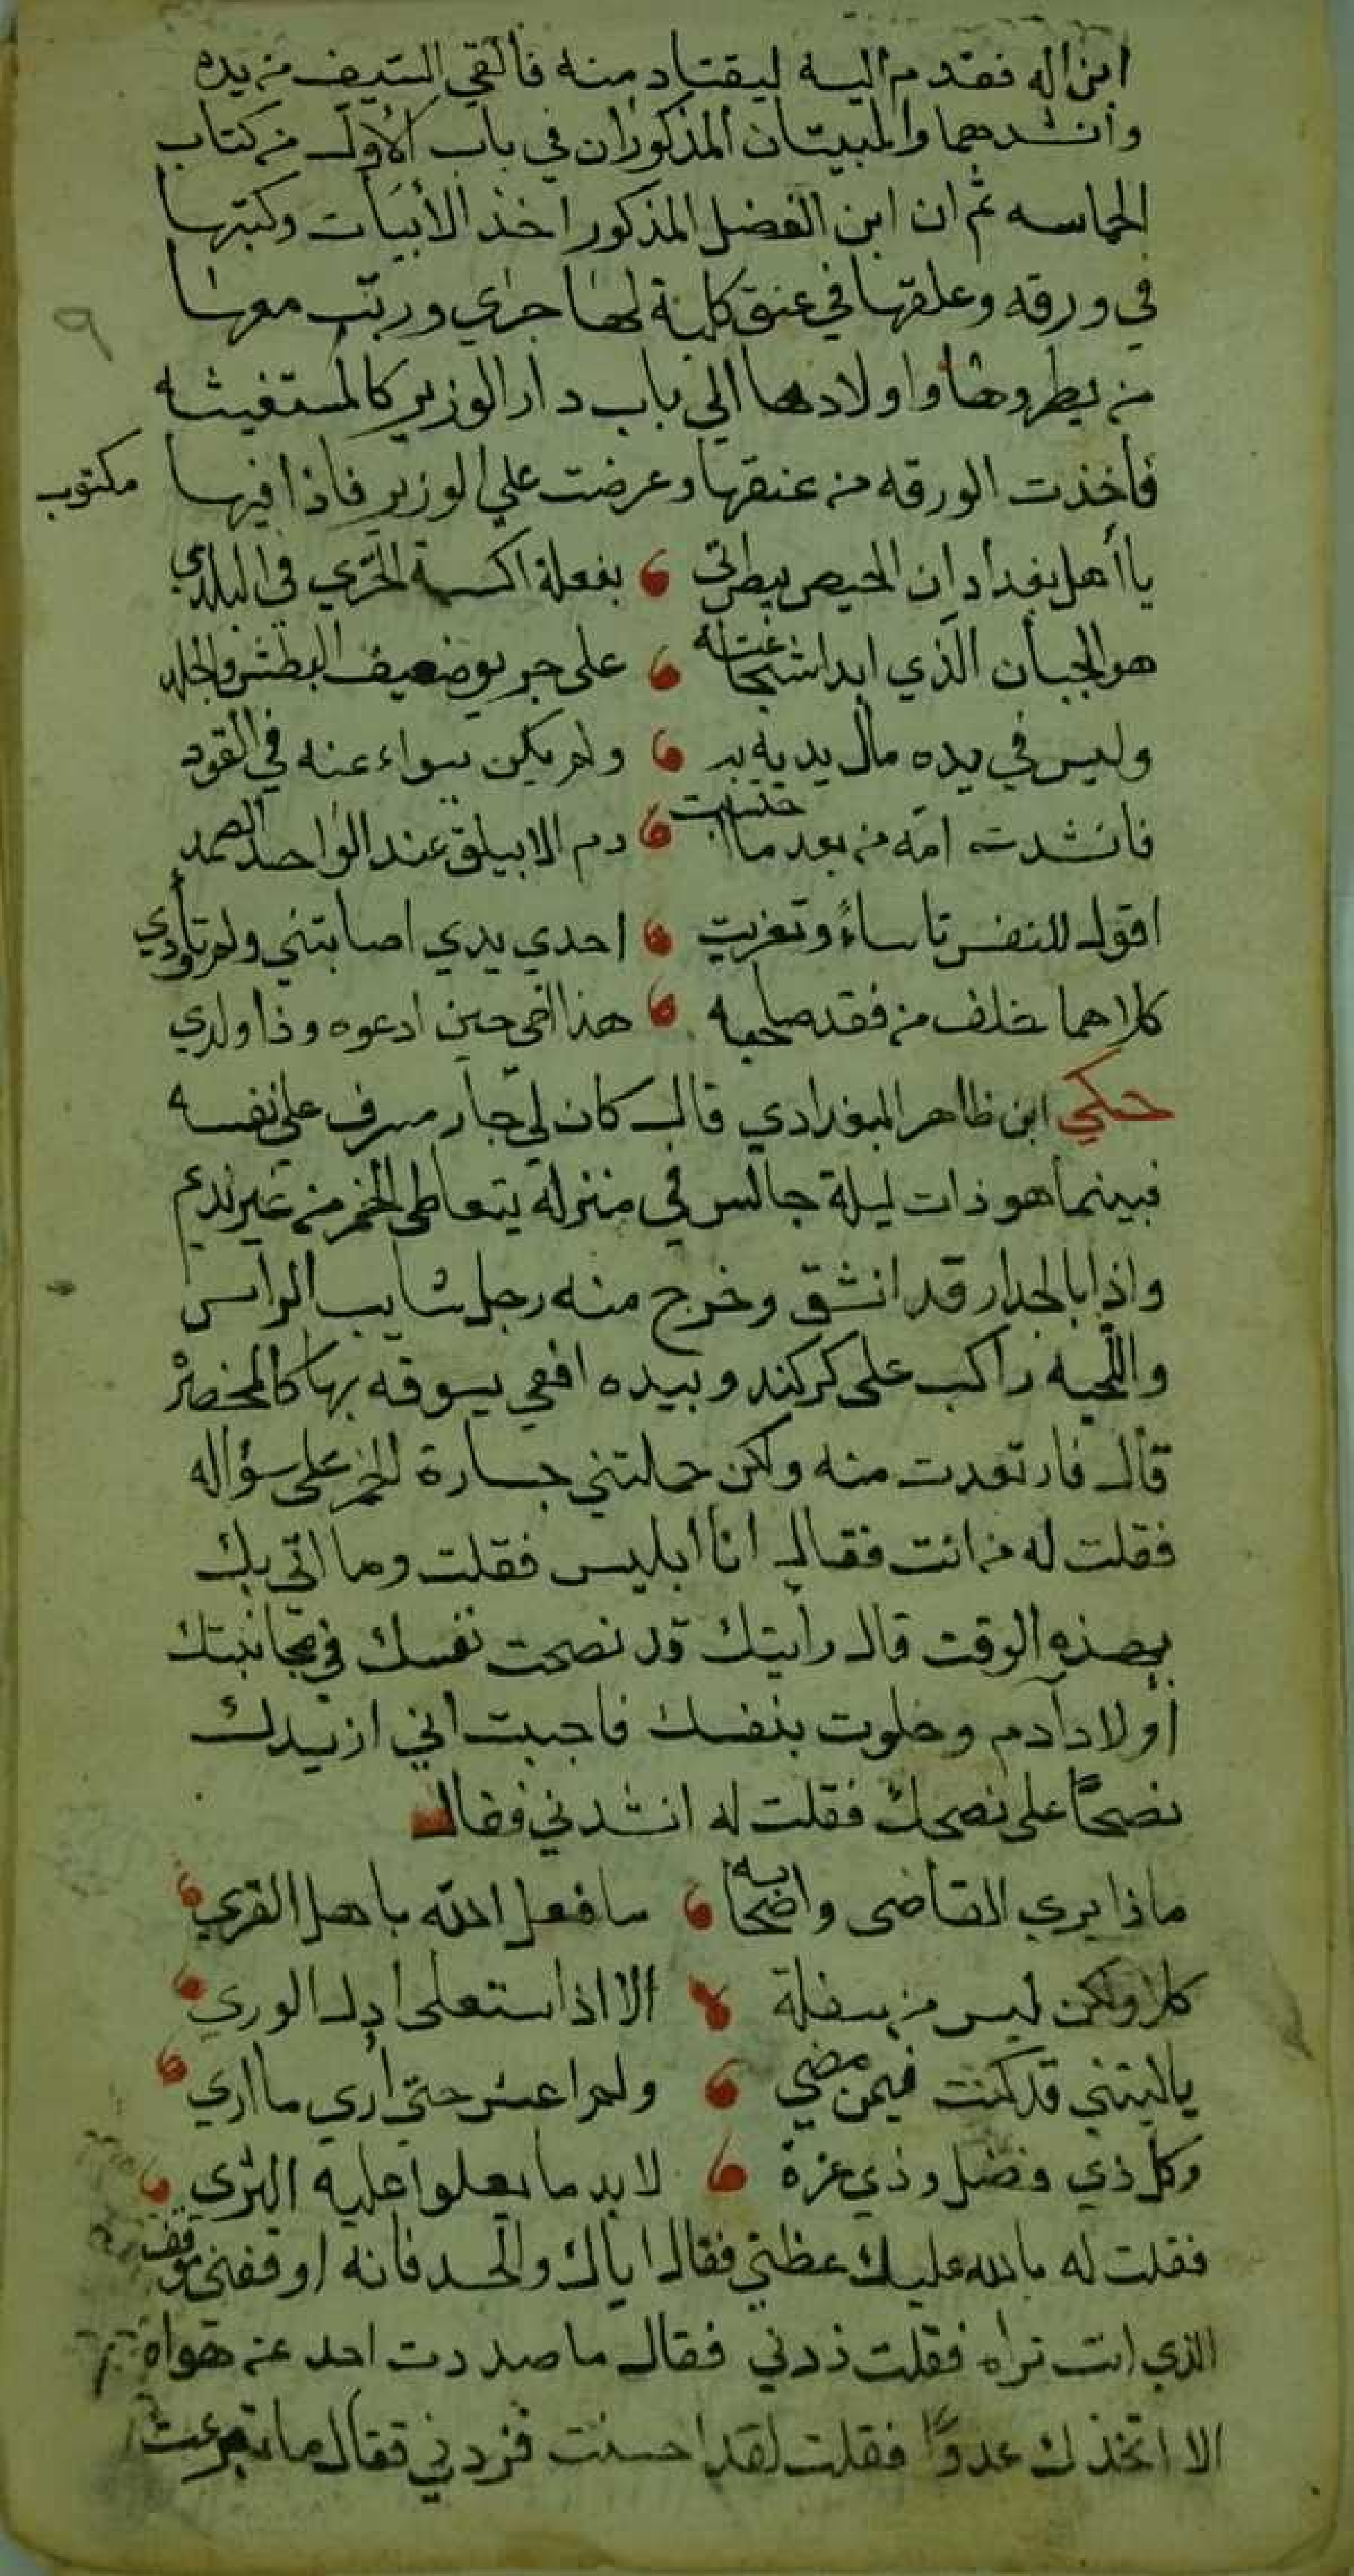 ابن اله فقدم اليه ليقتاد منه فالقي السيف من يده
وانشدهما والبيتان المذكوران في باب الاول من كتاب
الحماسه ثم ان ابن الفضل المذكور اخذ الأبيات وكتبها
في ورقه وعلقها في عنق كلبة لها جراي ورتب معها
من يطردها واولادها الي باب دار الوزير كالمستغيثه
فأخذت الورقه من عنقها وعرضت علي الوزير فاذا فيها مكتوب
يا أهل بغداد ان الحيص بيص اتي بفعلة اكسبة الخزي في البلدي
هو الجبان الذي ابدا شجاعته على جريو ضعيف البطش والجلد
وليس في يده مال يديه به ولم يكن بسواء عنه في القود
فانشدت امه من بعد ما احتسبت دم الابيلق عند الواحد الصمد
اقول للنفس تاساءً وتعزيت احدي يدي اصابتني ولم تردي
كلاهما خلف من فقد صاحبه هذا اخي حين ادعوه وذا ولدي
حكي ابن ظاهر البغدادي قال كان لي جار مسرف على نفسه
فبينما هو ذات ليلة جالس في منزله يتعاطى الخمر من غير نديم
واذا بالجدار قد انشق وخرج منه رجل شايب الراس
واللحيه راكب على كركند وبيده افعي يسوقه بها كالمخصره
قال فارتعدت منه ولكن حملتني جسارة الخمر على سؤاله
فقلت له من انت فقال انا ابليس فقلت وما اتي بك
بهذه الوقت قال رايتك قد نصحت نفسك في مجانبتك
أولاد آدم وخلوت بنفسك فاجبت اني ازيدك
نصحًا على نصحك فقلت له انشدني فقال
ماذا يري القاضي واصحابه ما فعل الله باهل القري
كلا ولكن ليس من سفلة الا اذا استعلى اذل الوري
ياليتني قد كنت فيمن مضي ولم اعش حتى أري ما اري
وكل ذي فضل وذي عزة لا بد ما يعلوا عليه الثري
فقلت له بالله عليك عظني فقال اياك والحسد فانه اوقفني موقف
الذي انت تراه فقلت زدني فقال ما صددت احد عن هواه
الا اتخذك عدوًا فقلت لقد احسنت فزدني فقال ما تجرعت